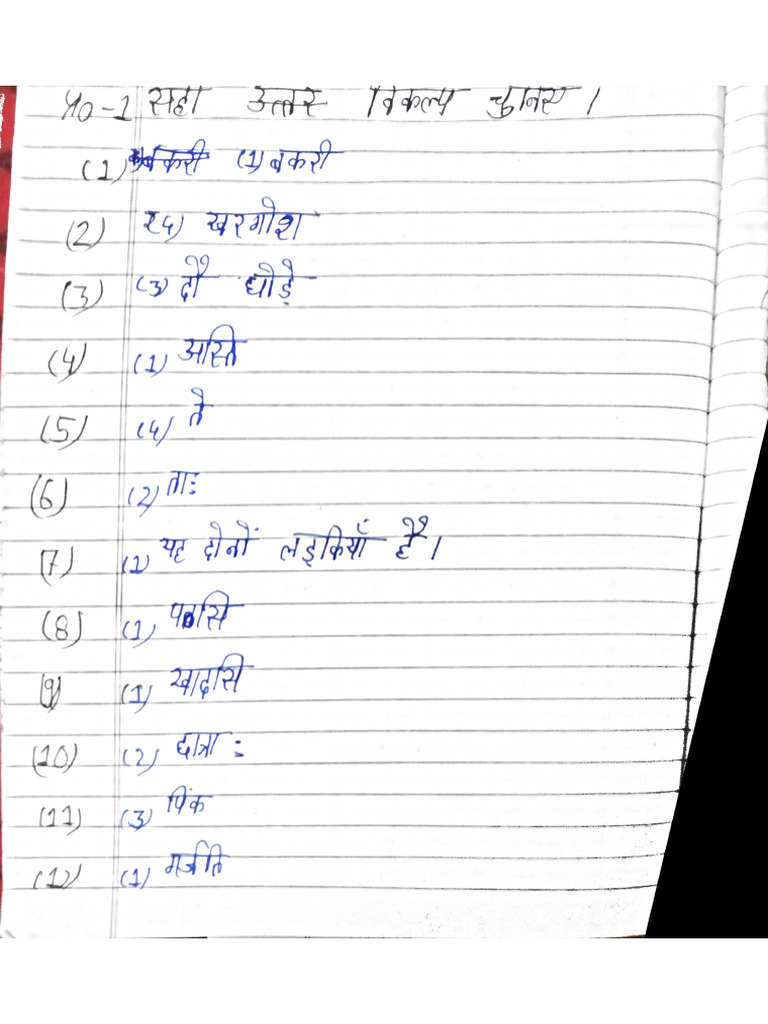 प्र०-1 सही उत्तर विकल्प चुनिए।
(1) (1) बकरी
(2) (4) खरगोश
(3) (3) दो घोड़े
(4) (1) अस्ति
(5) (4) ते
(6) (2) ताः
(7) (1) यह दोनों लड़कियाँ हैं।
(8) (1)
(9) (1) खादसि
(10) (2) छात्राः
(11) (3) पिक
(12) (1) गर्जति